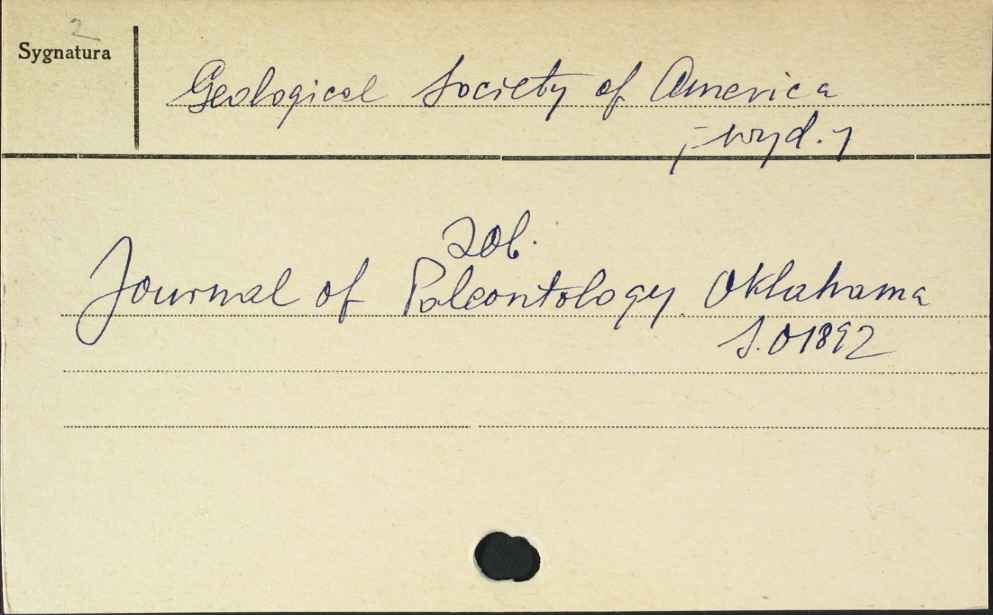 2
Sygnatura
Geological Society of America
[wyd.]
zob.
Journal of Paleontology. Oklahama
S.01892